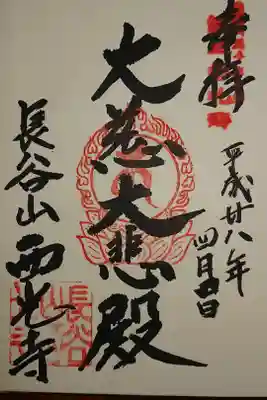 奉拝
平成廿八年
四月四日
大慈大悲殿
長谷山西光寺